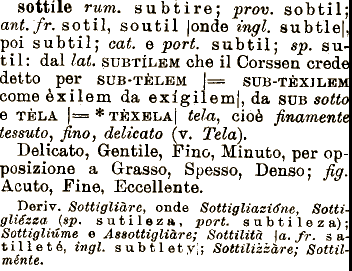 sottíle rum. subtire; prov. sobtil;
ant. fr. sotil, soutil |onde ingl. subtle|,
poi subtil; cat. e port. subtil; sp. su-
til: dal lat. SUBTÍLEM che il Corssen crede
detto per SUB-TÈLEM |= SUB-TÈXILEM
come èxilem da exígilem|, da SUB sotto
e TÈLA |= * TÈXELA| tela, cioè finamente
tessuto, fino, delicato (v. Tela).
Delicato, Gentile, Fino, Minuto, per op-
posizione a Grasso, Spesso, Denso; fig.
Acuto, Fine, Eccellente.
Deriv. Sottigliàre, onde Sottigliazióne, Sotti-
gliézza (sp. sutileza, port. subtileza);
Sottigliúme e Assottigliàre; Sottilità |a. fr. sa-
tilleté, ingl. subtlety|; Sottilizzàre; Sottil-
ménte.